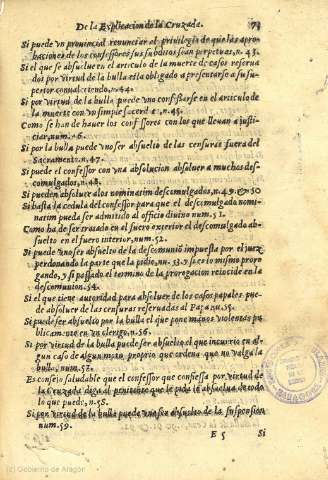 De la Explicacion de la Cruzada. 73
Si puede vn prouincial renunciar el priuilegio de que las apro
baciones de los confessores sus subditos sean perpetuas, n. 43.
Si el que se absuelue en el articulo de la muerte de casos reserua
dos por virtud de la bulla està obligado a presentarse a su su-
perior conualeciendo, n. 44.
Si por virtud de la bulla puede vno confessarse en el articulo de
la muerte con vn simple sacerdote, n. 45.
Como se han de hauer los confessores con los que lleuan a justi-
ciar, num. 46.
Si por la bulla puede vno ser absuelto de las censuras fuera del
Sacramento, n. 47.
Si puede el confessor con vna absolucion absoluer a muchos des-
comulgados, n. 48.
Si pueden absoluer a los nominatim descomulgados, n. 49. & 50
Si basta la cedula del confessor para que el descomulgado nomi-
natim pueda ser admitido al officio diuino num. 51.
Como ha de ser cosado en el fuero exterior el descomulgado ab-
suelto en el fuero interior, num. 52.
Si puede vno ser absuelto de la descomunion impuesta por el juez
perdonando la parte que la pidio, nu. 53. y si es lo mismo proro
gando, y si passado el termino de la prorogacion reincide en la
descomunion. 54.
Si el que tiene autoridad para absoluer de los casos papales pue-
de absoluer de las censuras reseruadas al Papa nu. 55.
Si puede ser absuelto por la bulla el que pone manos violentas pu
blicamente en vn clerigo, n. 56.
Si por virtud de la bulla puede ser absuelto el que incurrio en al-
gun caso de algun motu proprio que ordena que no valga la
bulla, num. 57.
Es consejo saludable que el confessor que confiessa por virtud de
la Cruzada diga al penitente que le pida le absuelua de todo
lo que puede, n. 58.
Si por virtud de la bulla puede vno ser absuelto de la suspension
num. 59.
E 5 Si
(c) Gobierno de Aragón